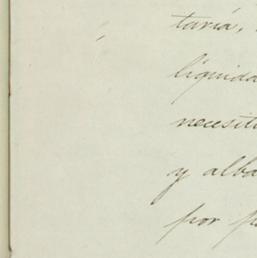 taria,
liquida
necesit
y alba
por p